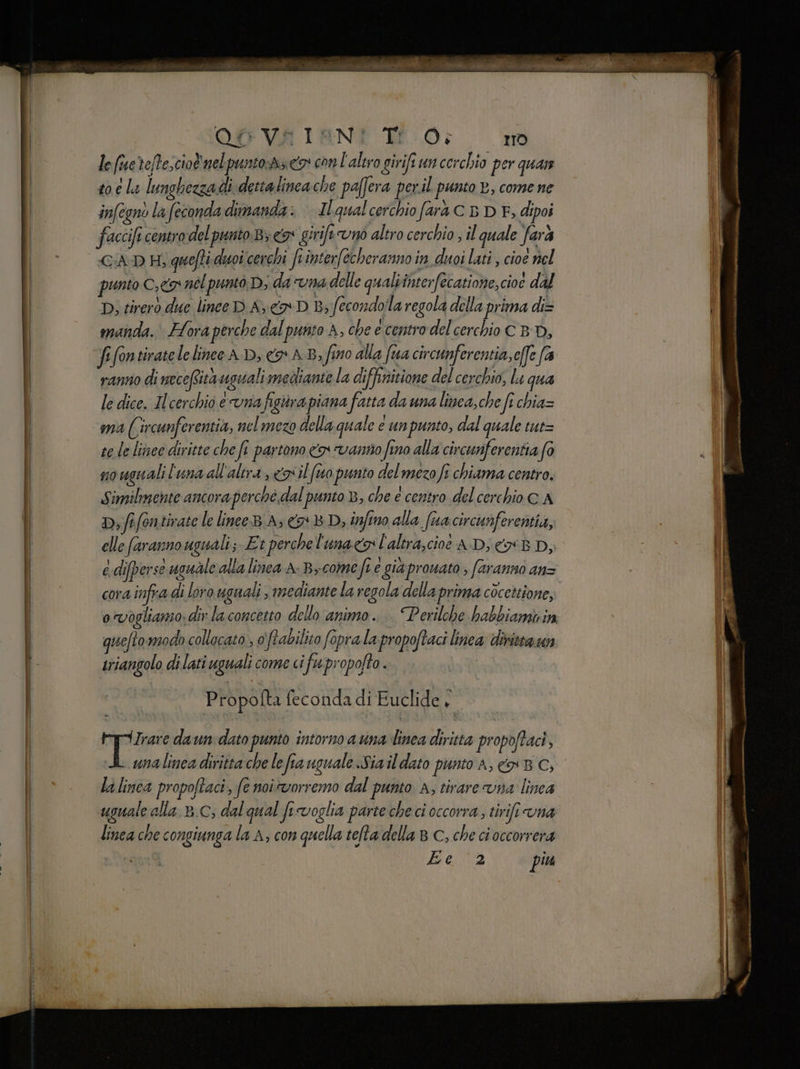 QVINTO. 110
le sue teste, cioè nel punto A, & con l'altro girisi un cerchio per quan
to è la lunghezza di detta linea che passerà per il punto B, come ne
insegnò la seconda dimanda. Il qual cerchio sarà C B D F, dipoi
faccisi centro del punto B, & girisi vno altro cerchio, il quale sarà
C A D H, questi duoi cerchi si intersecheranno in duoi lati, cioè nel
punto C, & nel punto D, da vna delle quali intersecatione, cioè dal
D, tirerò due linee D A, & D B, secondo la regola della prima di=
manda. Hora perche dal punto A, che è centro del cerchio C B D,
si son tirate le linee A D, & A B, fino alla sua circunferentia, esse sa
ranno di necessità uguali mediante la diffinitione del cerchio, la qua
le dice. Il cerchio è vna figura piana fatta da una linea, che si chia=
ma Circunferentia, nel mezo della quale è un punto, dal quale tut=
te le linee diritte che si partono & vanno fino alla circunferentia so
no uguali l'una all'altra, & il suo punto del mezo si chiama centro.
Similmente ancora perche dal punto B, che è centro del cerchio C A
D, si son tirate le linee B A, & B D, infino alla sua circunferentia,
elle saranno uguali; Et perche l'una & l'altra, cioè A D, & B D,
è disperse uguale alla linea A B, come si è già prouato, saranno an=
cora infra di loro uguali, mediante la regola della prima cōcettione,
o vogliamo dir la concetto dello animo. Perilche habbiamo in
questo modo collocato, o stabilito sopra la propostaci linea diritta un
triangolo di lati uguali come ci fu proposto.
Proposta seconda di Euclide.
TIrare da un dato punto intorno a una linea diritta propostaci,
una linea diritta che le sia uguale. Sia il dato punto A, & B C,
la linea propostaci, se noi vorremo dal punto A, tirare vna linea
uguale alla B C, dal qual si voglia parte che ci occorra, tirisi vna
linea che congiunga la A, con quella testa della B C, che ci occorrera
Ee 2 piu